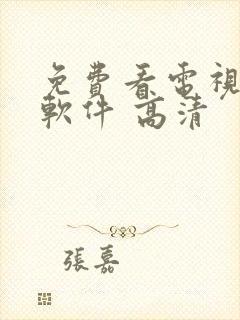 免費看電視
軟件 高清
張嘉